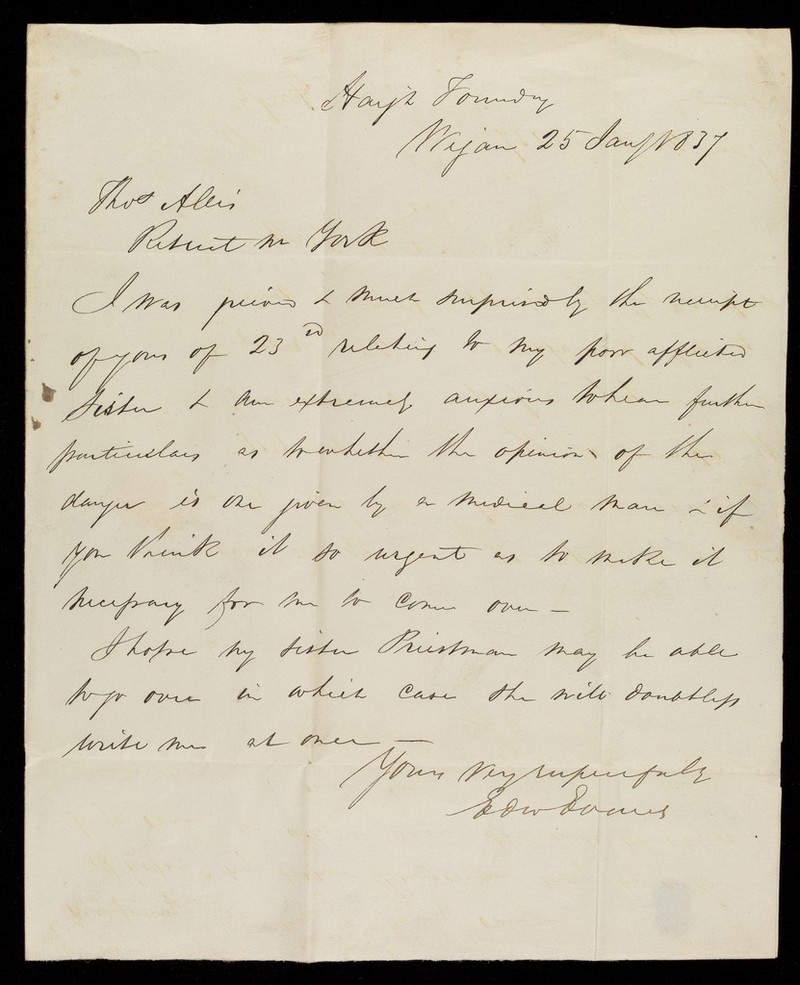 Haigh Foundry
Wigan 25 Jany 1837
Thos Allis
Retreat nr York
I was grieved & much surprised by the receipt
of yours of 23rd relating to my poor afflicted
Sister & am extremely anxious to hear further
particulars as to whether the opinion of the
danger is one given by a medical man & if
you think it so urgent as to make it
necessary for me to come over —
I hope my sister Priestman may be able
to go over in which case she will doubtless
write me at once —
Yours very respectfully
Edw Evans